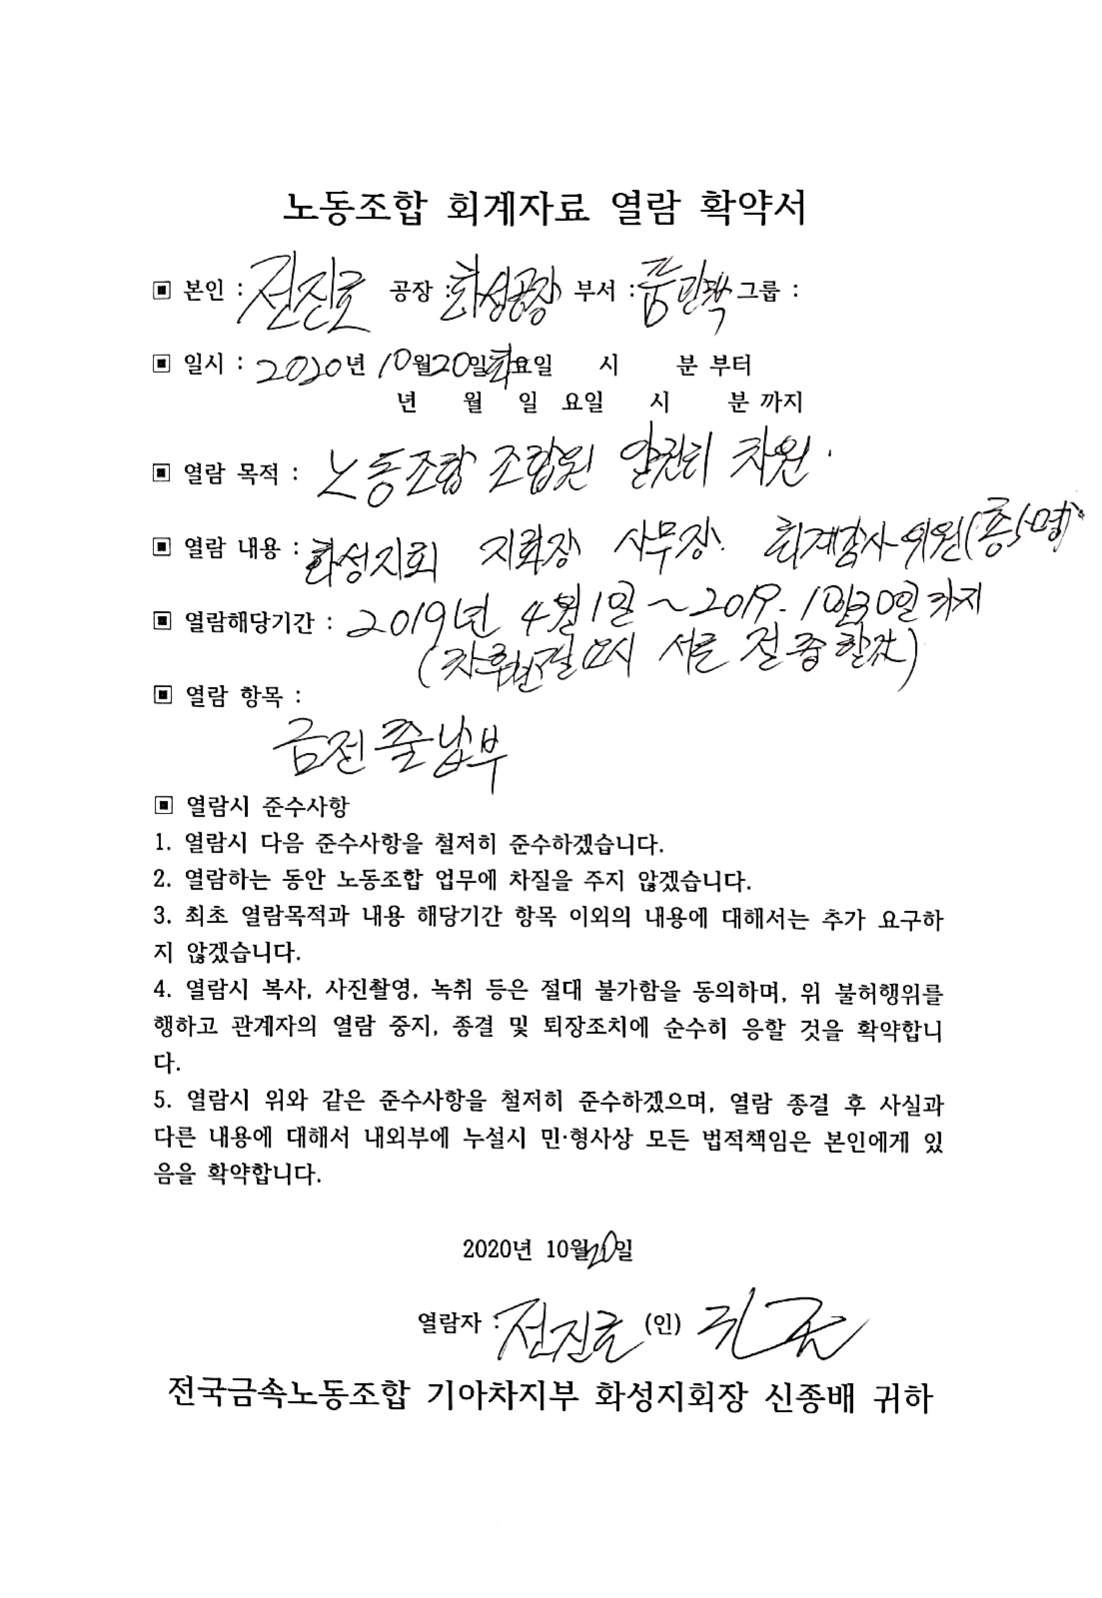 노동조합 회계자료 열람 확약서
▣ 본인 : 전진호 공장 : 화성공장 부서 : 그룹 :
▣ 일시 : 2020년 10월20일 화요일 시 분 부터
년 월 일 요일 시 분 까지
▣ 열람 목적 : 노동조합 조합원 알권리 차원.
▣ 열람 내용 : 화성지회 지회장 사무장. 회계감사위원(총5명)
▣ 열람해당기간 : 2019년 4월1일 ~ 2019. 10월30일까지
(차후 서류 할것)
▣ 열람 항목 :
금전출납부
▣ 열람시 준수사항
1. 열람시 다음 준수사항을 철저히 준수하겠습니다.
2. 열람하는 동안 노동조합 업무에 차질을 주지 않겠습니다.
3. 최초 열람목적과 내용 해당기간 항목 이외의 내용에 대해서는 추가 요구하
지 않겠습니다.
4. 열람시 복사, 사진촬영, 녹취 등은 절대 불가함을 동의하며, 위 불허행위를
행하고 관계자의 열람 중지, 종결 및 퇴장조치에 순수히 응할 것을 확약합니
다.
5. 열람시 위와 같은 준수사항을 철저히 준수하겠으며, 열람 종결 후 사실과
다른 내용에 대해서 내외부에 누설시 민·형사상 모든 법적책임은 본인에게 있
음을 확약합니다.
2020년 10월20일
열람자 : 전진호 (인)
전국금속노동조합 기아차지부 화성지회장 신종배 귀하